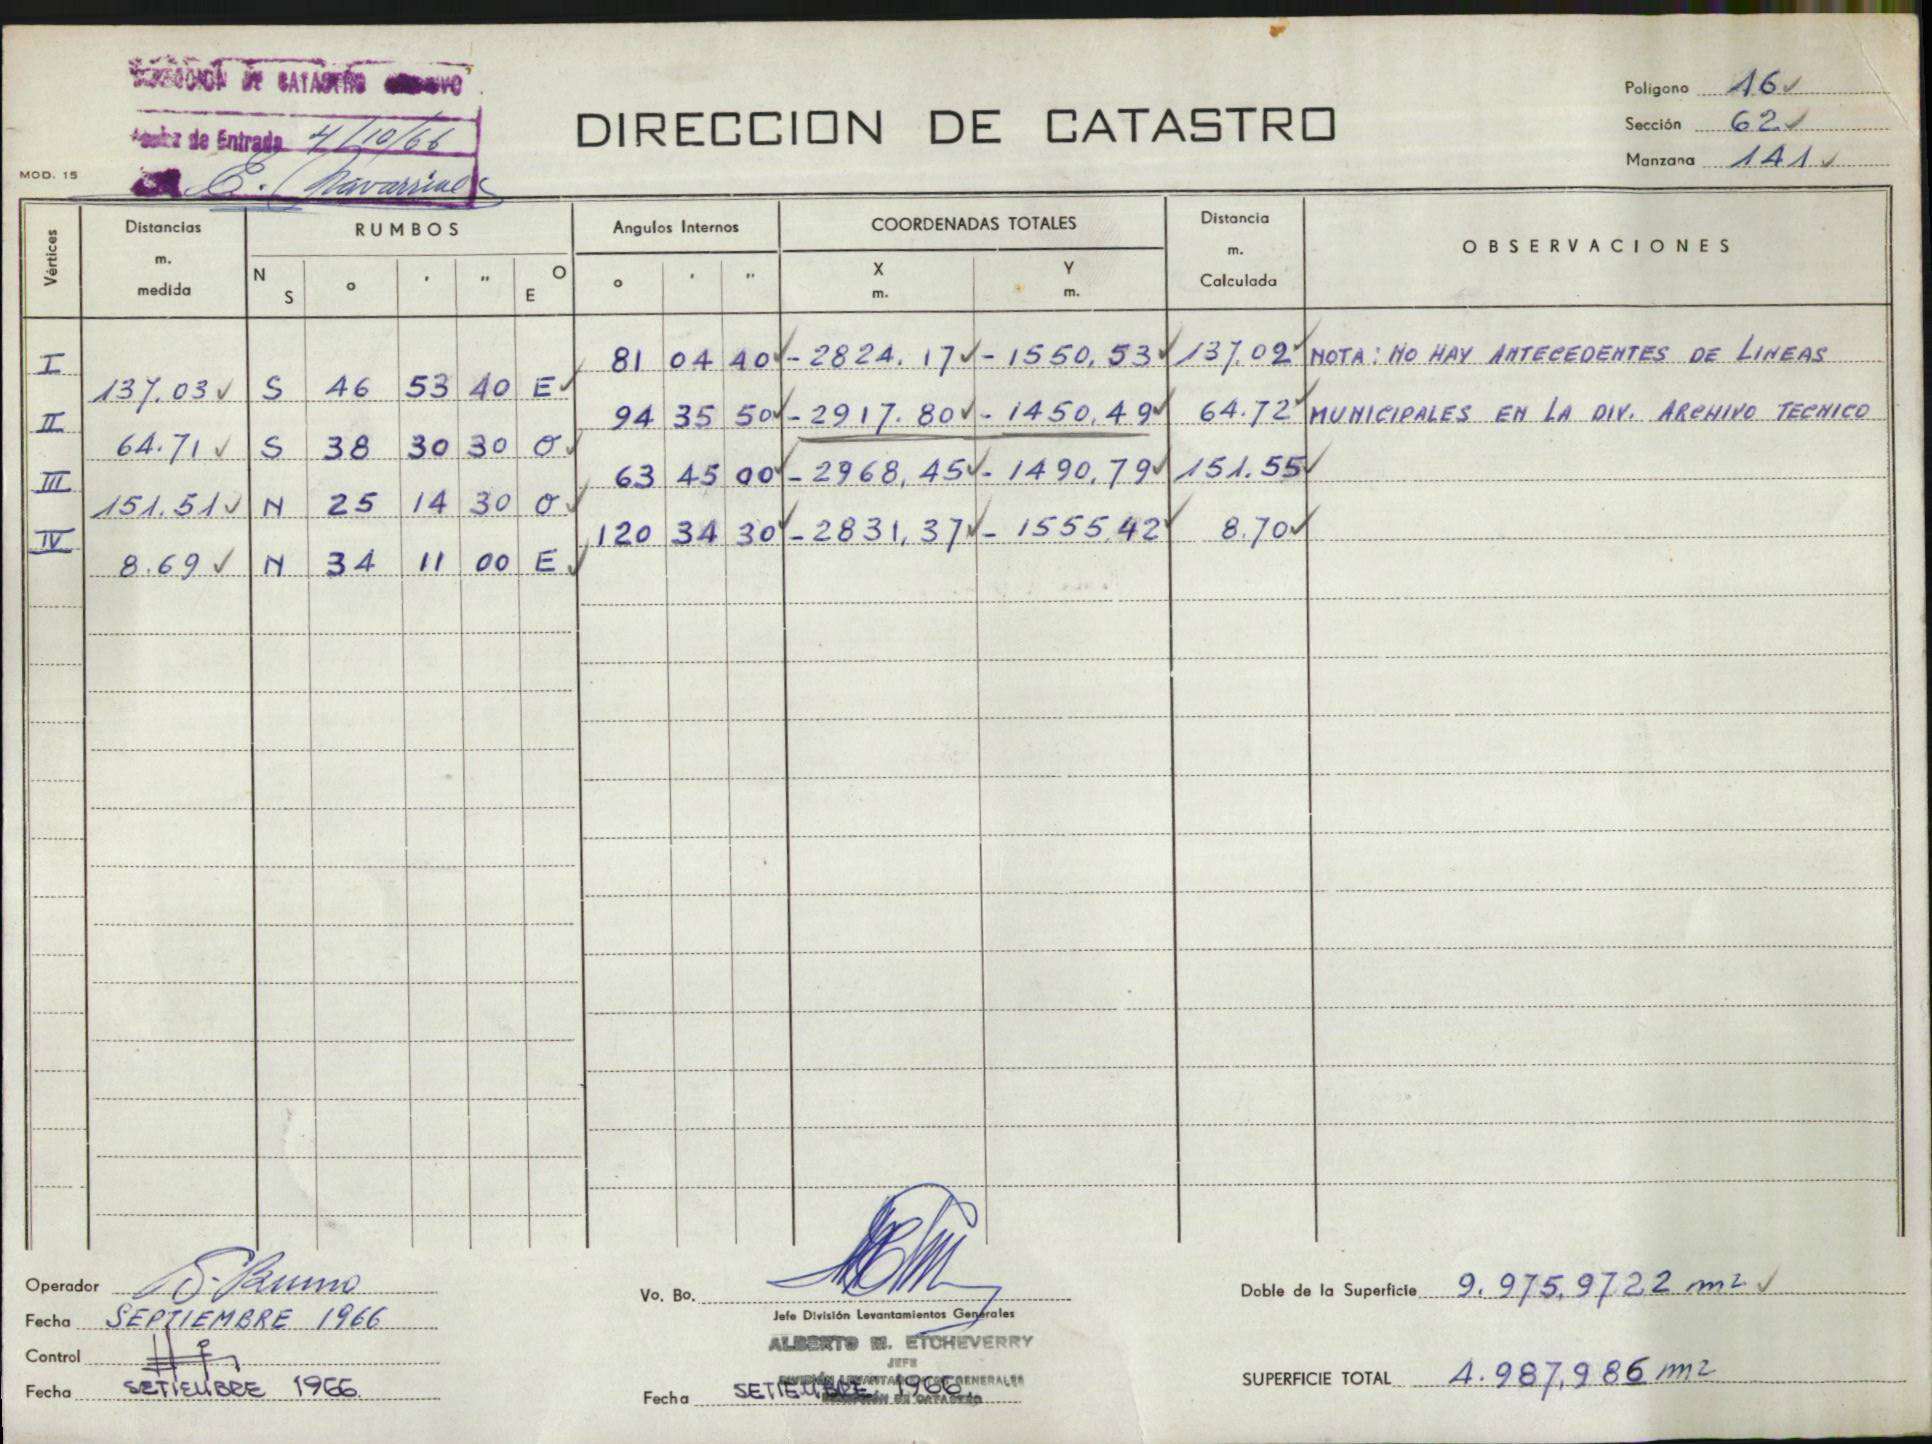 DIRECCION DE CATASTRO
Fecha de Entrada 4/10/66
MOD. 15
DIRECCION DE CATASTRO
Polígono 16 ✓
Sección 62 ✓
Manzana 141 ✓
Vértices Distancias m. medida RUMBOS Angulos Internos COORDENADAS TOTALES Distancia m. Calculada OBSERVACIONES
N S o ' " O E o ' " X m. Y m.
I 81 04 40 ✓ - 2824.17 ✓ - 1550,53 ✓ 137.02 ✓ NOTA: NO HAY ANTECEDENTES DE LINEAS
137.03 ✓ S 46 53 40 E ✓
II 94 35 50 ✓ - 2917.80 ✓ - 1450,49 ✓ 64.72 ✓ MUNICIPALES EN LA DIV. ARCHIVO TECNICO
64.71 ✓ S 38 30 30 O ✓
III 63 45 00 ✓ - 2968,45 ✓ - 1490,79 ✓ 151.55 ✓
151.51 ✓ N 25 14 30 O ✓
IV 120 34 30 ✓ - 2831,37 ✓ - 1555,42 ✓ 8.70 ✓
8.69 ✓ N 34 11 00 E ✓
Operador S. Bruno
Fecha SEPTIEMBRE 1966
Control
Fecha SETIEMBRE 1966
Vo. Bo.
Jefe División Levantamientos Generales
ALBERTO M. ETCHEVERRY
JEFE
DIVISIÓN LEVANTAMIENTOS GENERALES
DIRECCIÓN DE CATASTRO
Fecha SETIEMBRE 1966
Doble de la Superficie 9.975,9722 m2 ✓
SUPERFICIE TOTAL 4.987,986 m2